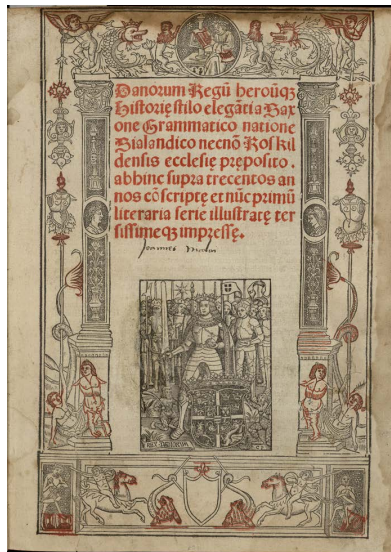 Danorum Regū heroūqȝ
Historię stilo elegāti a Sax
one Grammatico natione
Sialandico necnō Roskil
densis ecclesię pręposito.
abhinc supra trecentos an
nos cōscriptę et nūc primū
literaria serie illustratę ter
sissimeqȝ impressę.